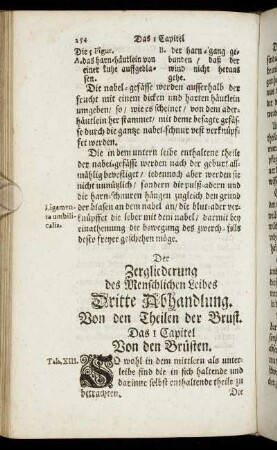 254 Das 1 Capitel
Die 5 Figur.
A. das harn-häutlein von
einer kuhe auffgebla-
sen.
B. der harn-gang ge-
bunden/ daß der
wind nicht heraus
gehe.
Die nabel-gefässe werden ausserhalb der
frucht mit einem dicken und harten häutlein
umgeben/ so/ wie es scheinet/ von dem ader-
häutlein her stammet/ mit deme besagte gefäs-
se durch die gantze nabel-schnur vest verknüpf-
fet werden.
Die in dem untern leibe enthaltene theile
der nabel-gefässe werden nach der geburt all-
mählig bevestiget/ jedennoch aber werden sie
nicht unnützlich/ sondern die pulß-adern und
die harn-schnuren hängen zugleich den grund
der blasen an dem nabel an/ die blut-ader ver-
knüpffet die leber mit dem nabel/ darmit bey
einathemung die bewegung des zwerch-fells
desto freyer geschehen möge.
Ligamen-
ta umbili-
calia.
Der
Zergliederung
des Menschlichen Leibes
Dritte Abhandlung.
Von den Theilen der Brust.
Das 1 Capitel
Von den Brüsten.
Tab. XIII.
SO wohl in dem mittlern als unter-
leibe sind die in sich haltende und
darinne selbst enthaltende theile zu
betrachten.
Der